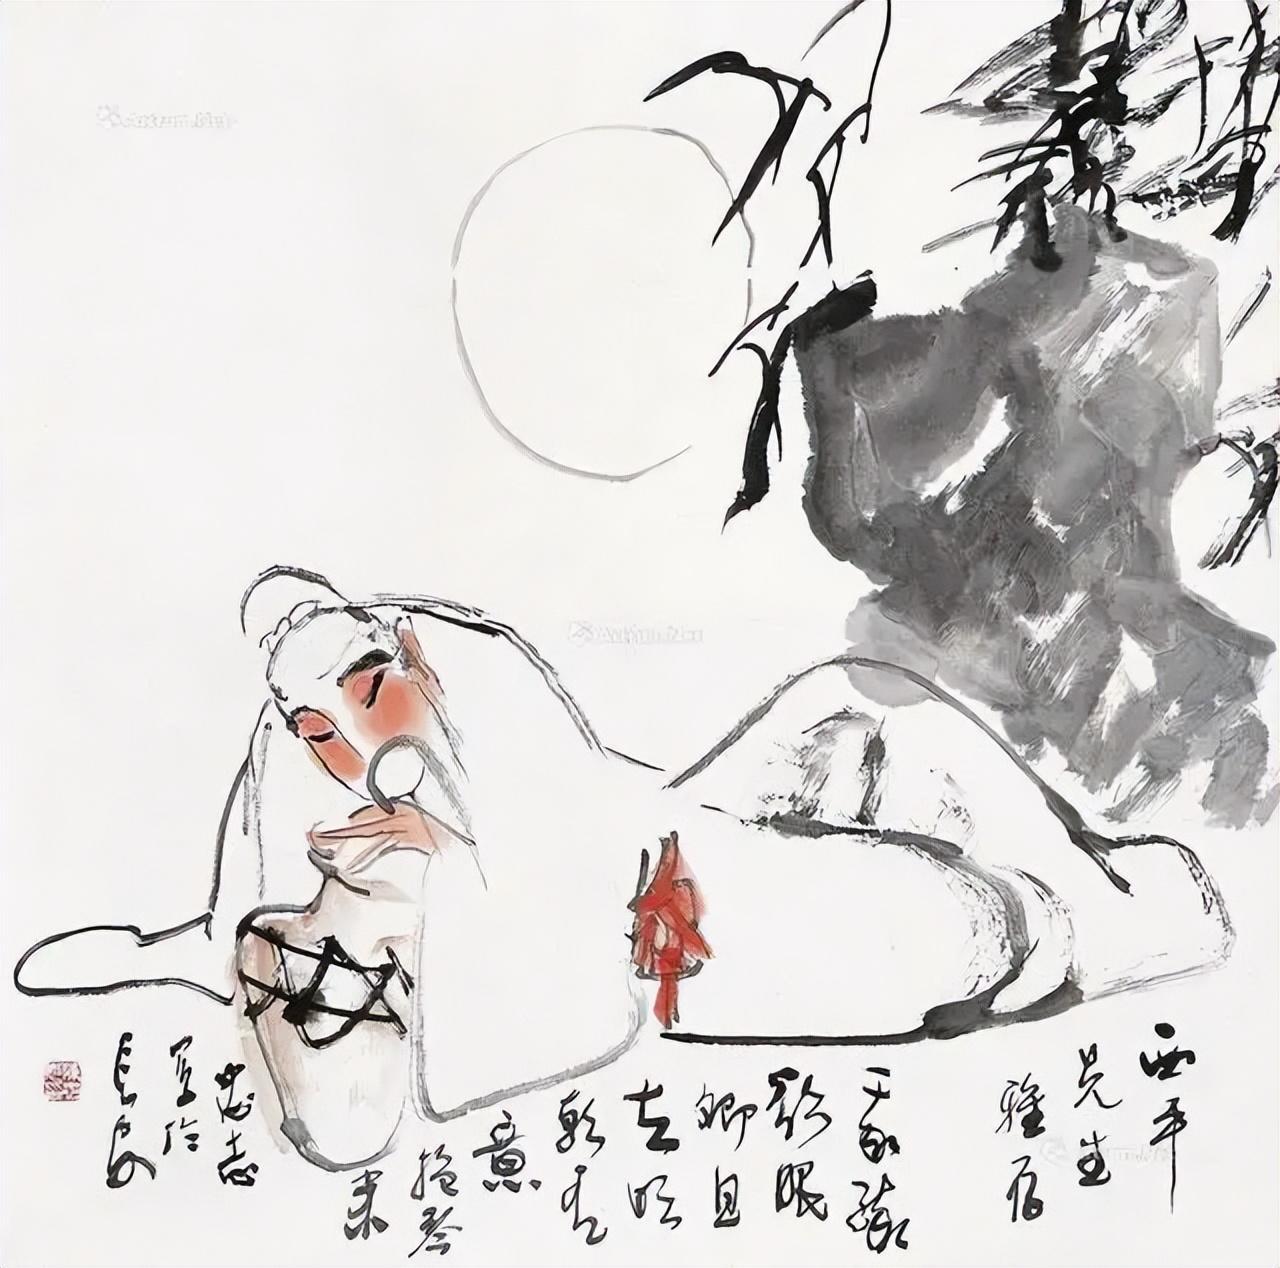 西平
先生
雅存
我醉
欲眠
卿且
去明
朝有
意
抱琴
来
忠志
写於
长安